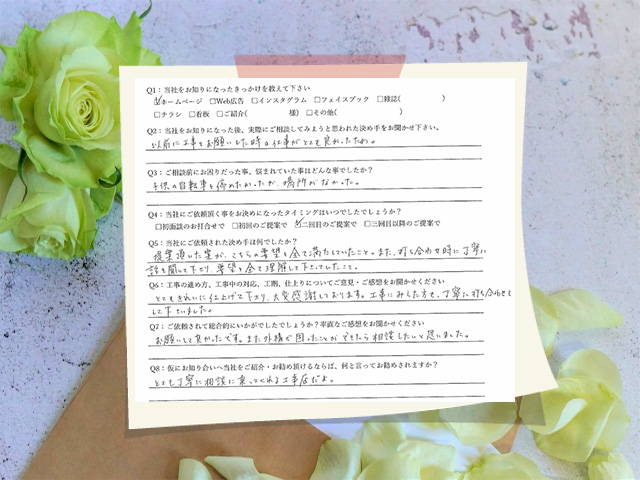 Q1：当社をお知りになったきっかけを教えて下さい
☑ホームページ □Web広告 □インスタグラム □フェイスブック □雑誌( )
□チラシ □看板 □ご紹介( 様) □その他( )
Q2：当社をお知りになった後、実際にご相談してみようと思われた決め手をお聞かせ下さい。
以前に工事をお願いした時の仕事がとても良かったため。
Q3：ご相談前にお困りだった事、悩まれていた事はどんな事でしたか？
子供の自転車を停めたかったが、場所がなかった。
Q4：当社にご依頼頂く事をお決めになったタイミングはいつでしたでしょうか？
□初面談のお打合せで □初回のご提案で ☑二回目のご提案で □三回目以降のご提案で
Q5：当社にご依頼された決め手は何でしたか？
提案頂いた案が、こちらの要望を全て満たしていたこと。また、打ち合わせ時に丁寧に
話を聞いて下さり、要望を全て理解して下さっていたこと。
Q6：工事の進め方、工事中の対応、工期、仕上りについてご意見・ご感想をお聞かせください
とてもきれいに仕上げて下さり、大変感謝しております。工事にみえた方も、丁寧に打ち合わせも
して下さいました。
Q7：ご依頼されて総合的にいかがでしたでしょうか？率直なご感想をお聞かせください
お願いして良かったです。また外構で困ったことがでたら相談したいと思いました。
Q8：仮にお知り合いへ当社をご紹介・お勧め頂けるならば、何と言ってお勧めされますか？
とても丁寧に相談に乗ってくれる工事店だよ。